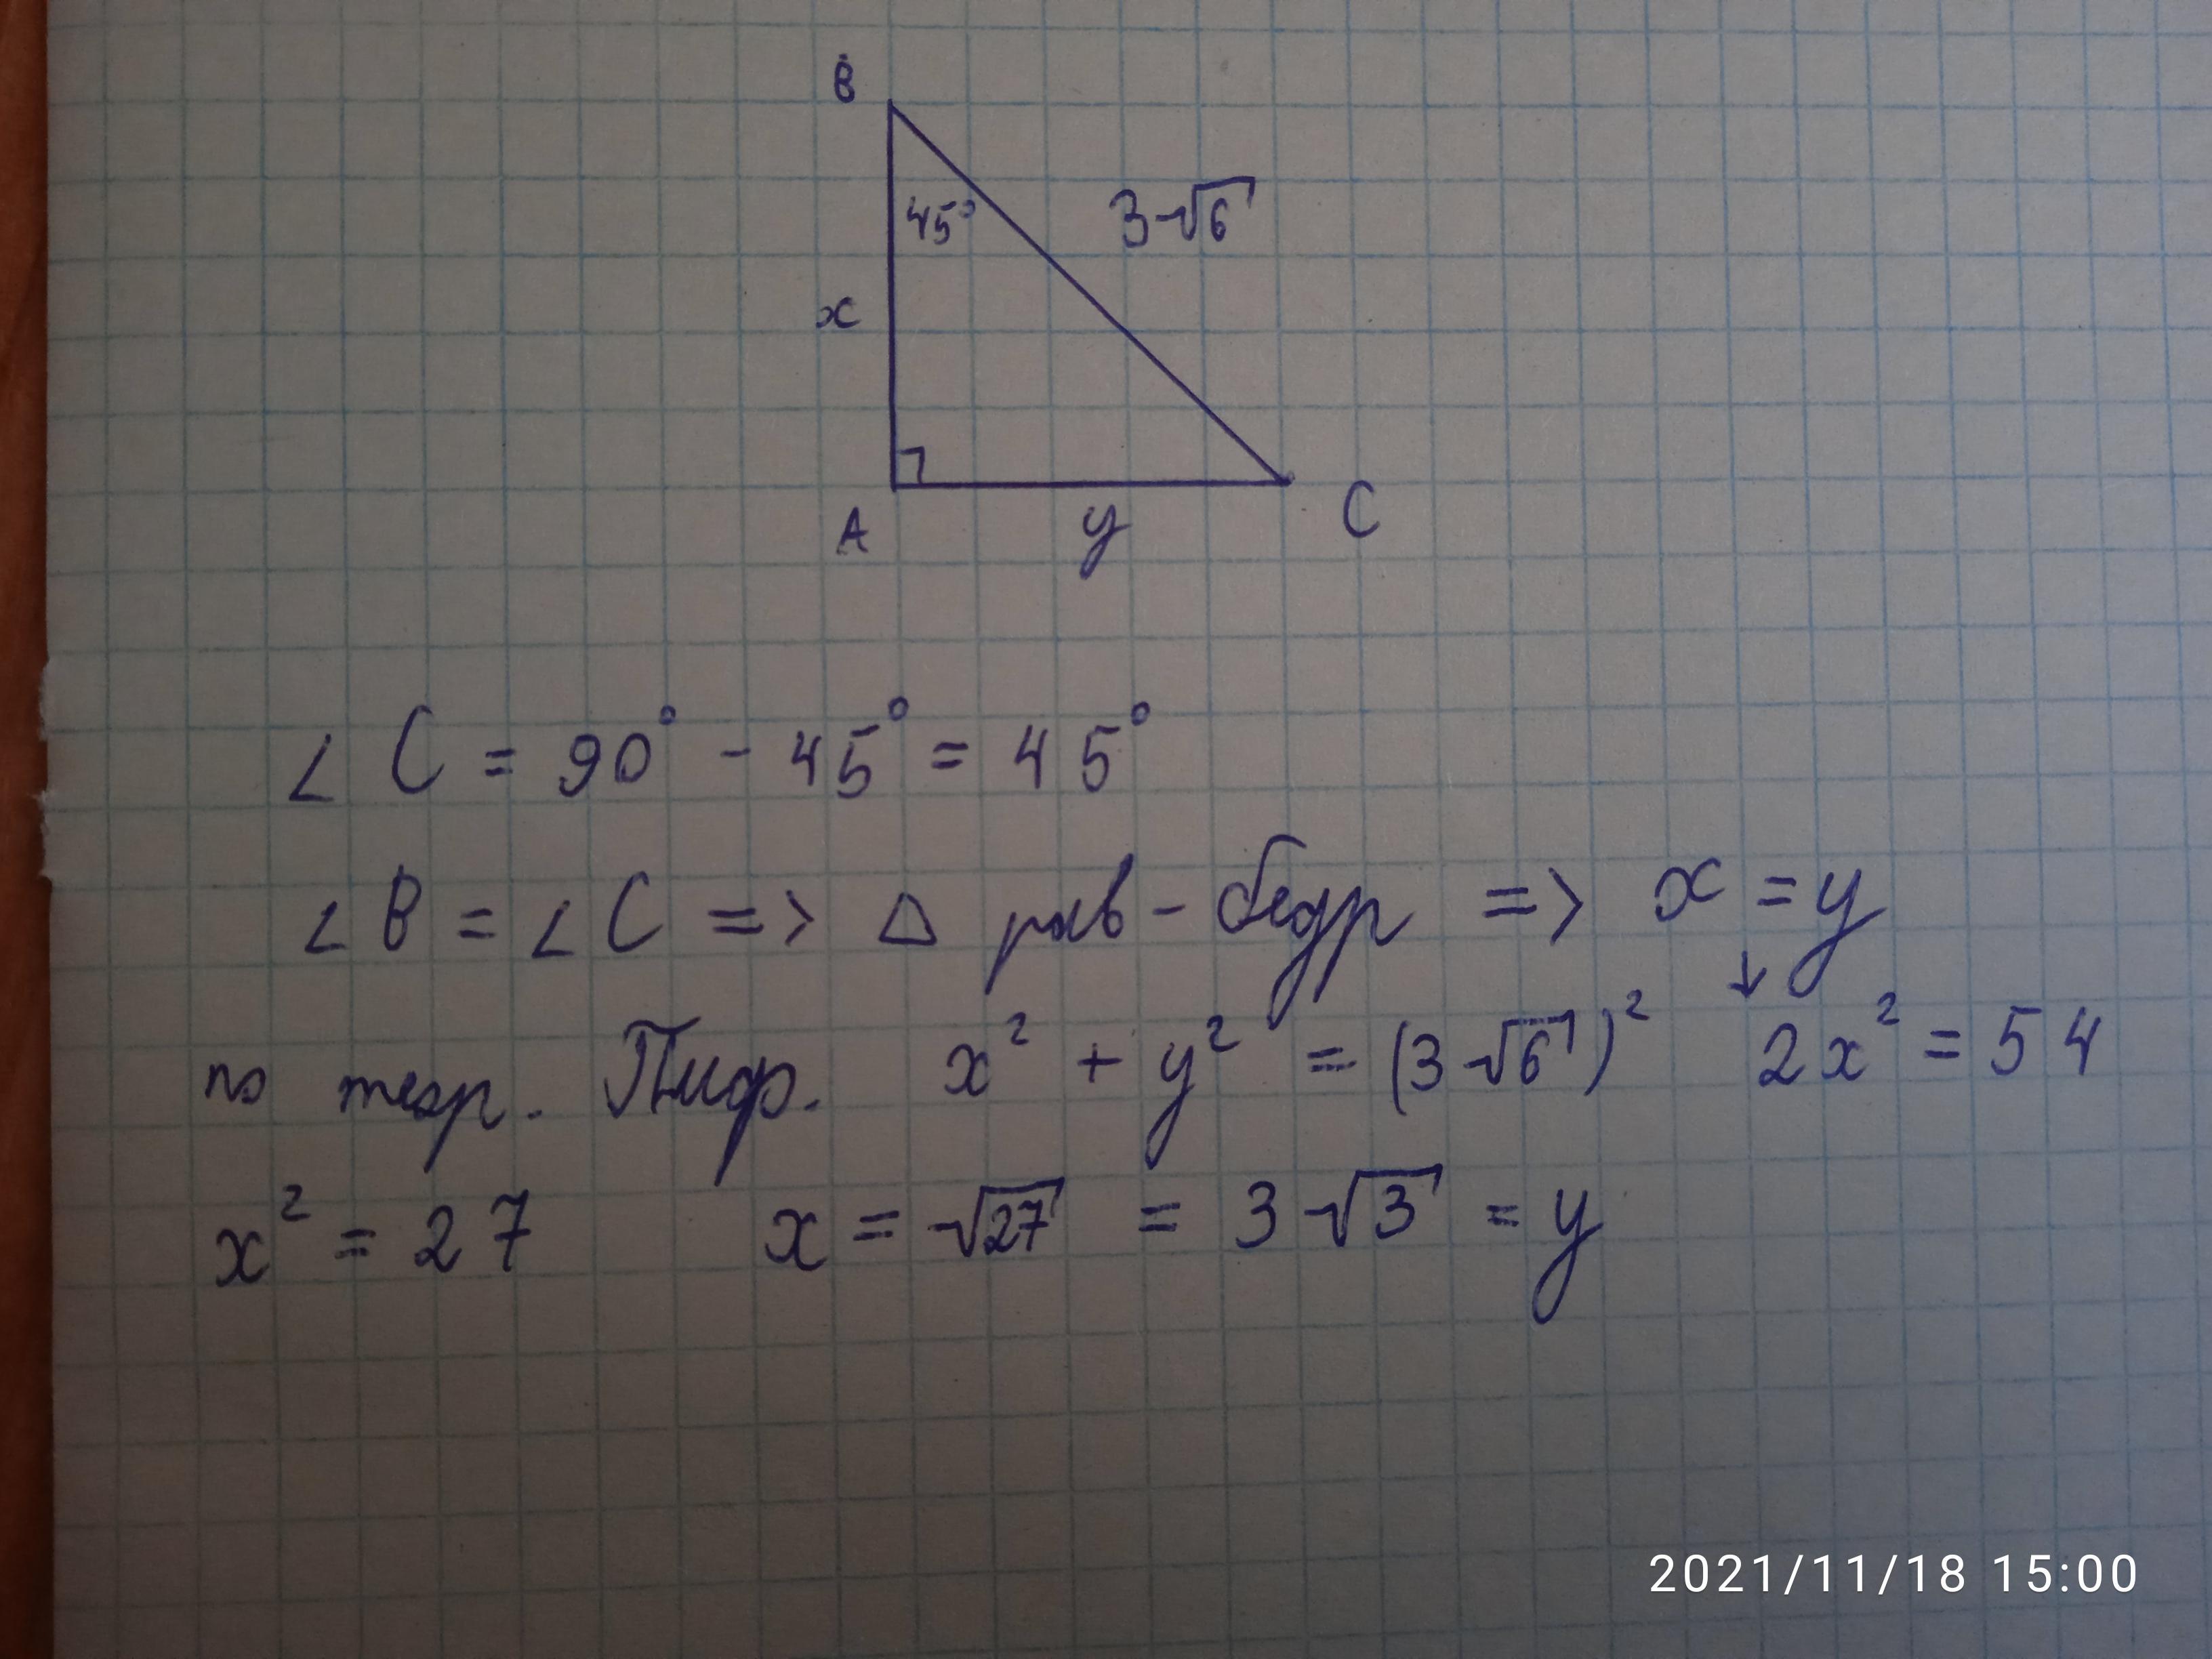 B
45° 3√6
x
A y C
∠ C = 90° - 45° = 45°
∠ B = ∠ C => △ рав-бедр => x = y
по теор. Пиф. x² + y² = (3√6)² ↓ 2x² = 54
x² = 27 x = √27 = 3√3 = y
2021/11/18 15:00